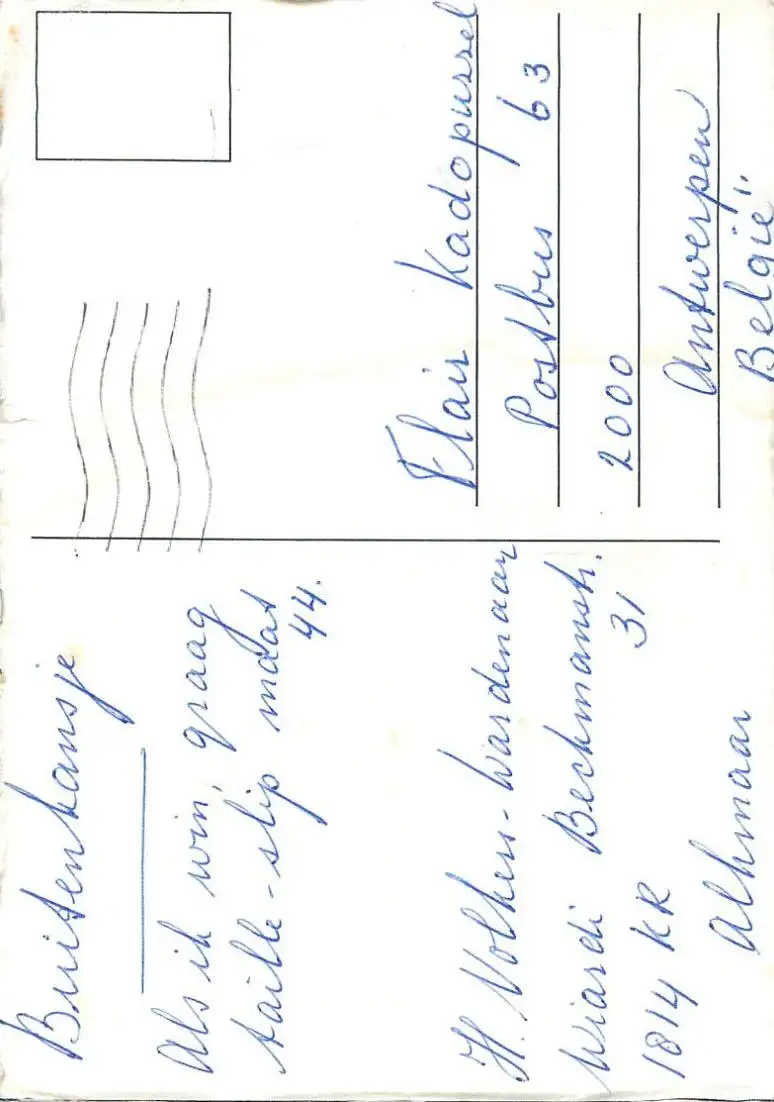 Buitenkansje
Als ik win, graag
taille-slip maat
44.
H. Volkers-Wardenaar
Wiardi Beckmanstr.
31
1814 KR
Alkmaar
Flair Kadopuzzel
Postbus 63
2000
Antwerpen
België